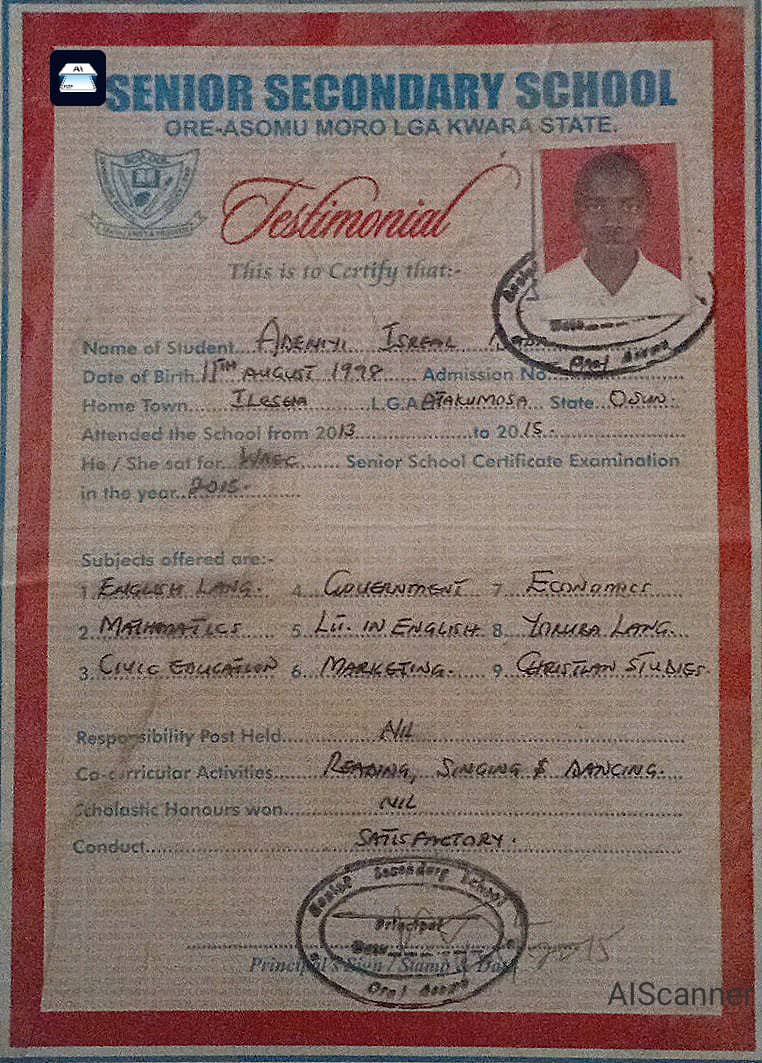 SENIOR SECONDARY SCHOOL
ORE-ASOMU MORO LGA KWARA STATE.
Testimonial
This is to Certify that:-
Name of Student... ADENIYI ISREAL
Date of Birth 11TH AUGUST 1998 Admission No.
Home Town ILESHA L.G.A ATAKUMOSA State OSUN.
Attended the School from 2013 to 2015.
He / She sat for WAEC Senior School Certificate Examination
in the year 2015.
Subjects offered are:-
1 ENGLISH LANG. 4 GOVERNMENT 7 ECONOMICS
2. MATHMATICS 5 LIT. IN ENGLISH 8 YORUBA LANG.
3. CIVIC EDUCATION 6 MARKETING. 9 CHRISTIAN STUDIES.
Responsibility Post Held NIL
Co-curricular Activities READING, SINGING & DANCING.
Scholastic Honours won NIL
Conduct SATISFACTORY.
Senior Secondary School
Principal
Date
Principal's Sign / Stamp & Date
AIScanner